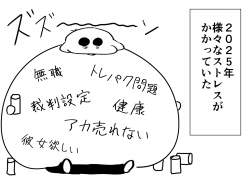 2025年
様々なストレスが
かかっていた
ズズ
無職
トレパク問題
裁判設定
健康
アカ売れない
彼女欲しい